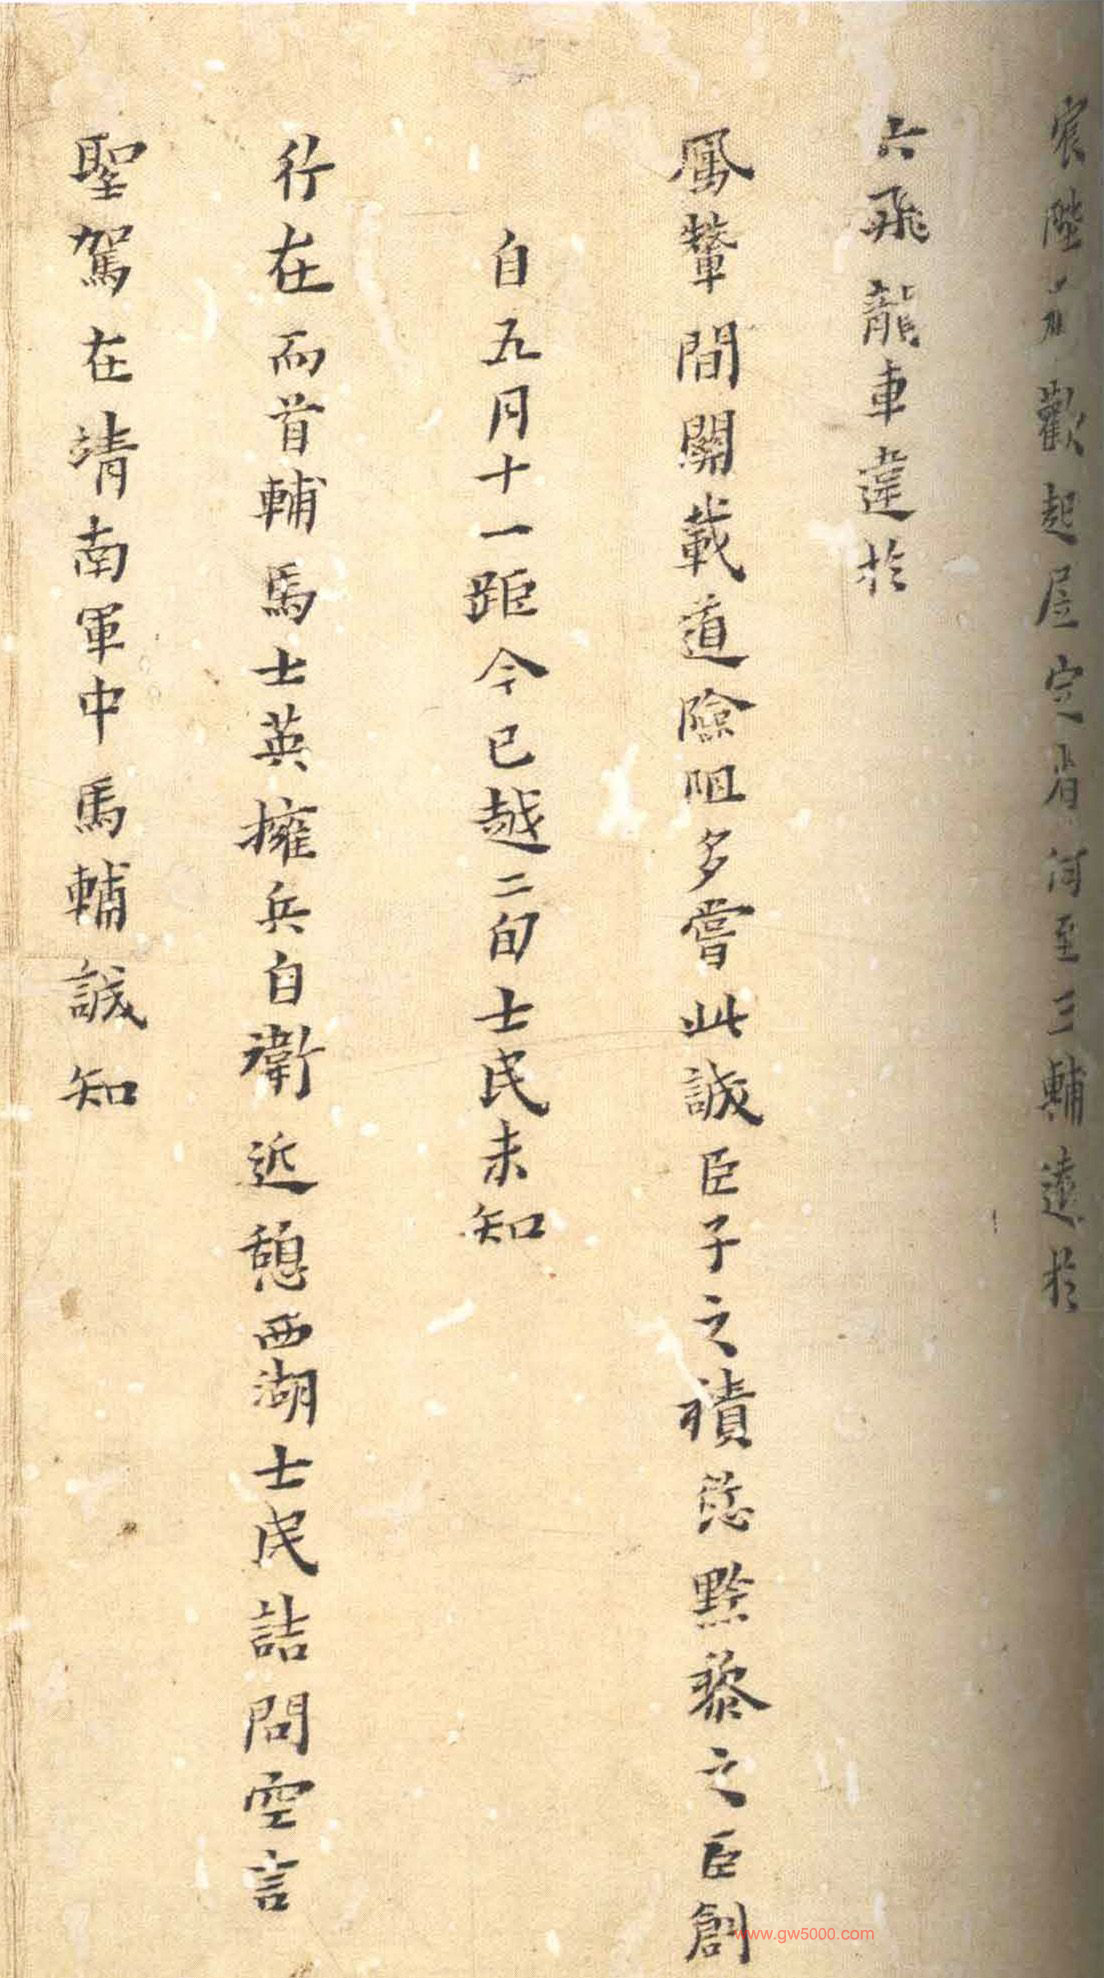 宸陛前歡起居定省何至三輔遠於
六飛龍車違於
鳳輦間關載道險阻多嘗此誠臣子之積愆黔黎之臣創
自五月十一距今已越二旬士民未知
行在而首輔馬士英擁兵自衛近憩西湖士民詰問空言
聖駕在靖南軍中馬輔誠知
www.gw5000.com